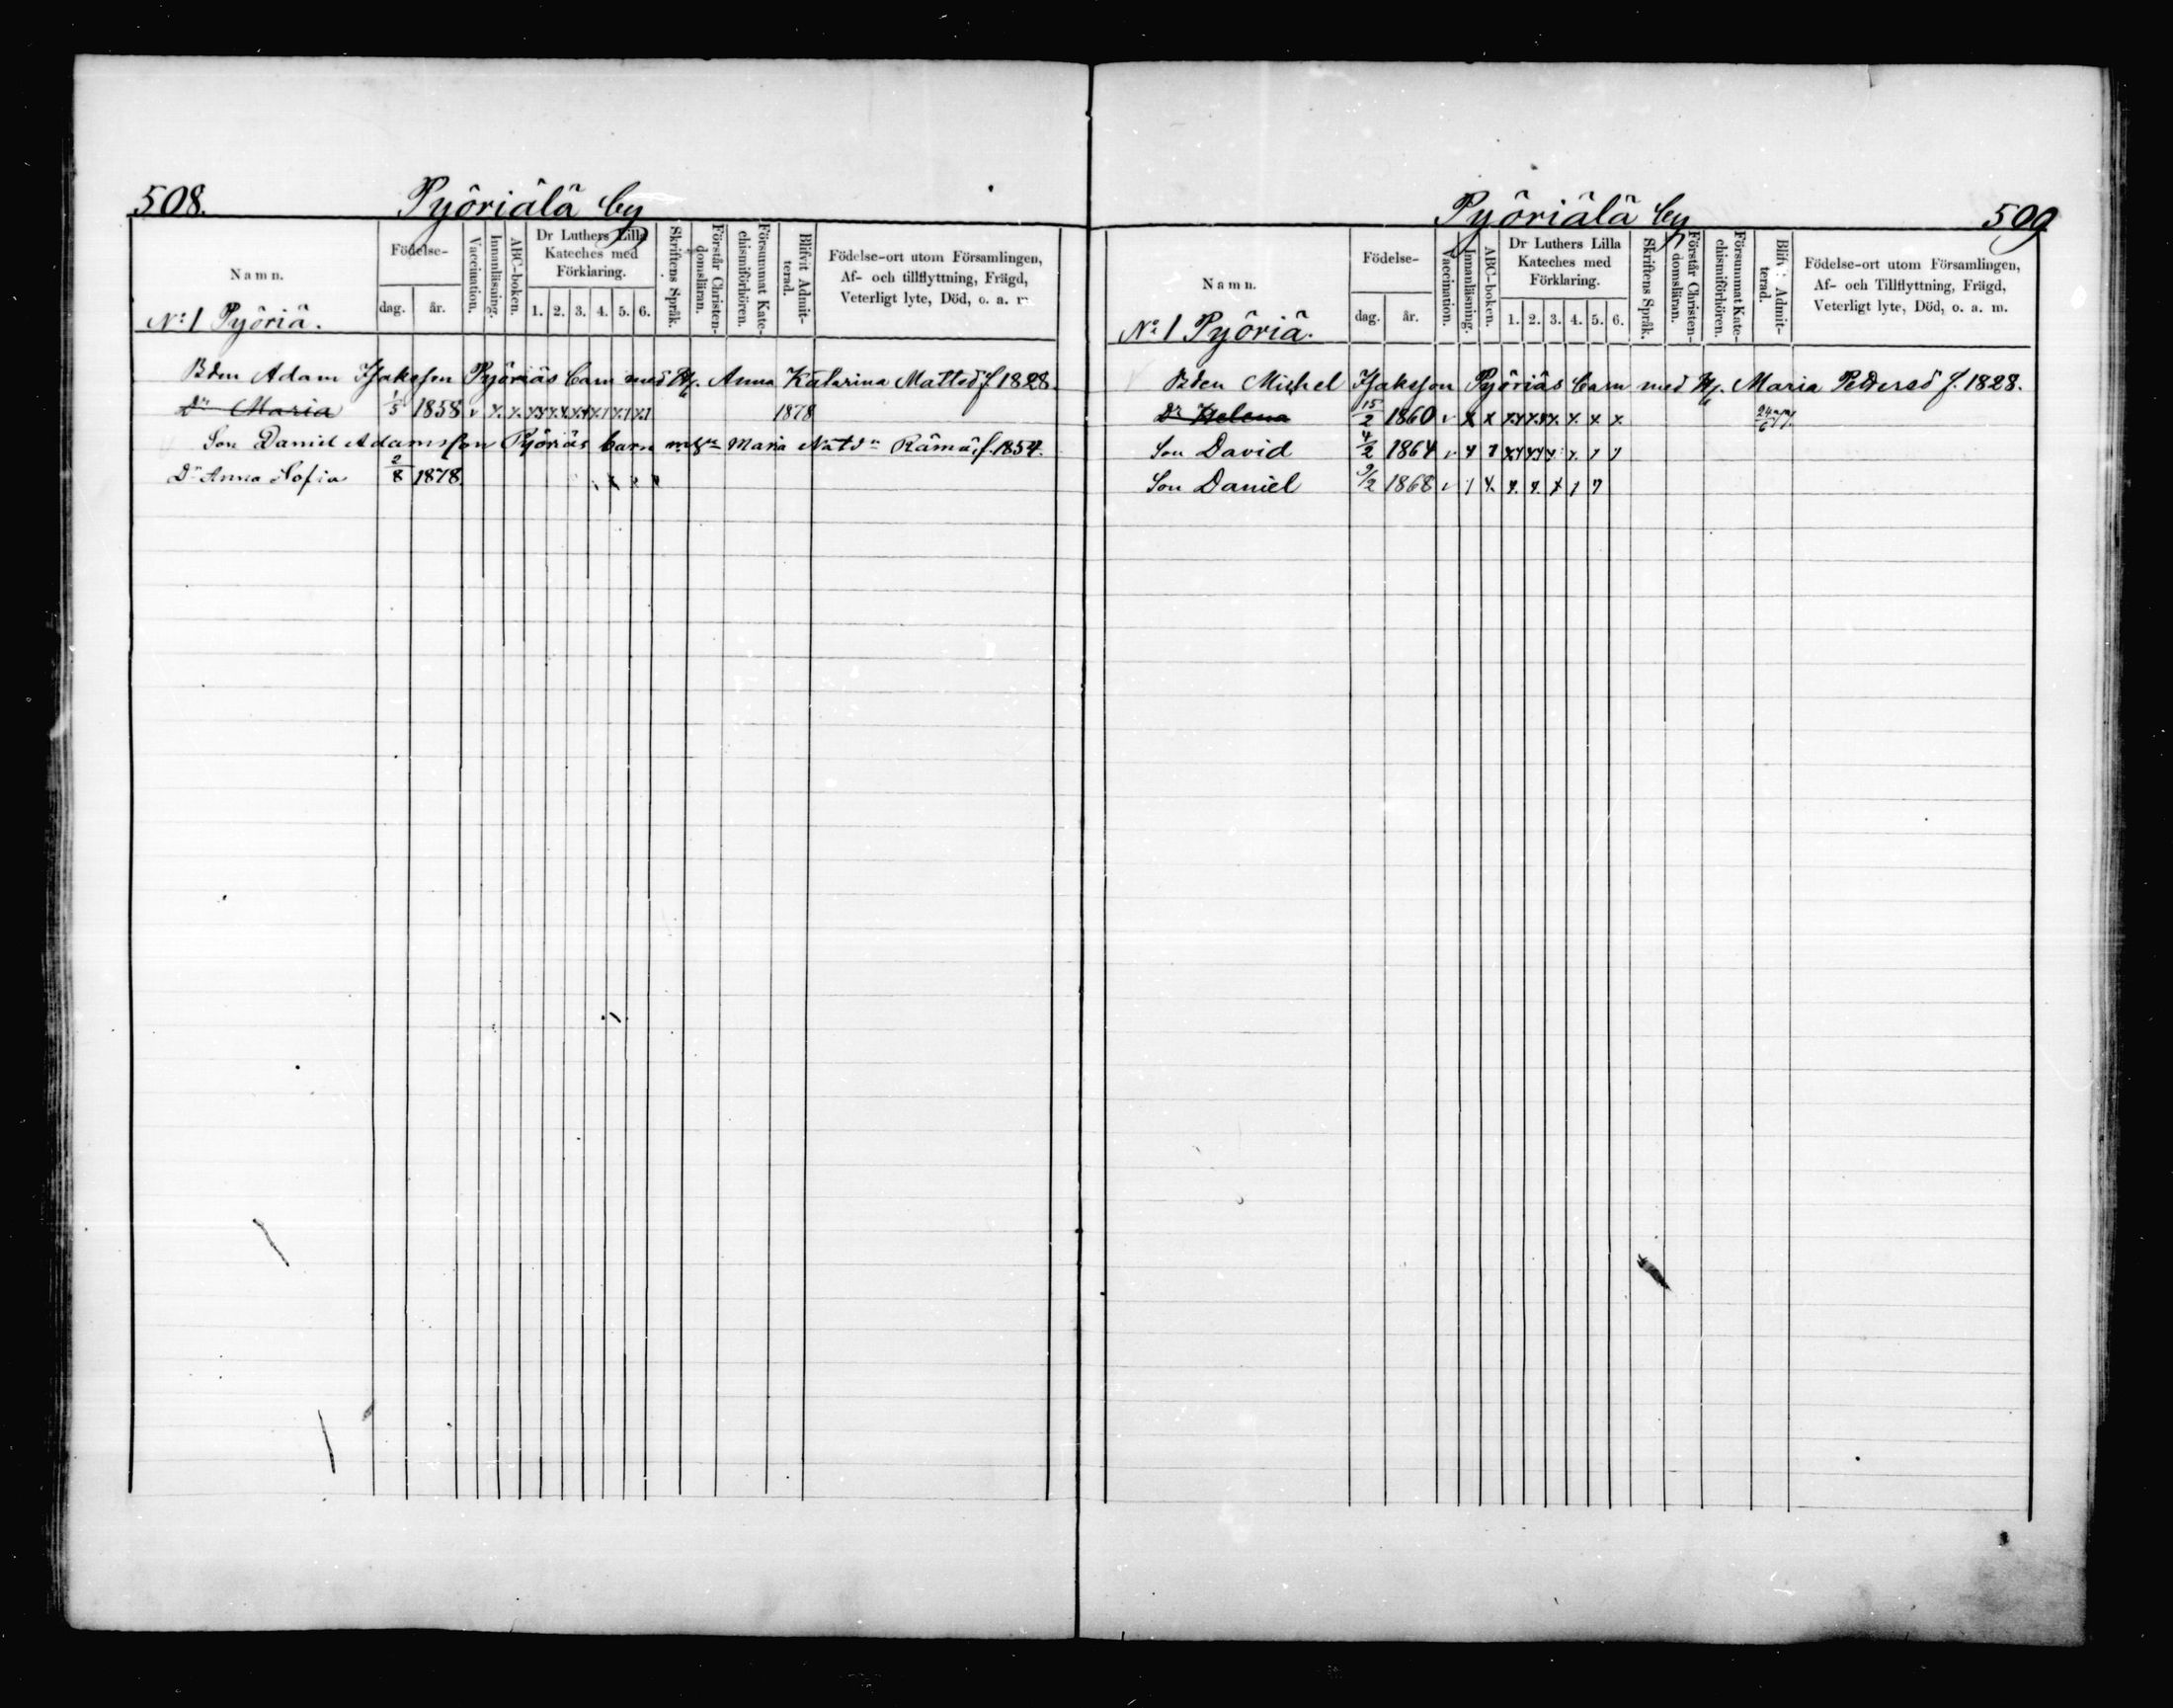 508.
Pyöriälä by
Namn.
Födelse-
dag.
år.
Vaccination.
Innanläsning.
ABC-boken.
Dr Luthers Lilla
Kateches med
Förklaring.
1. 2. 3. 4. 5. 6.
Skriftens Språk.
Förstår Christen-
domsläran.
Försummat Kate-
chismiförhören.
Blifvit Admit-
terad.
Födelse-ort utom Församlingen,
Af- och tillflyttning, Frägd,
Veterligt lyte, Död, o. a. m.
No 1 Pyöriä.
Bden Adam Isaksson Pyöriäs barn med Hu. Anna Katarina Mattsd f 1828.
Dr Maria 1/5 1858 1878
Son Daniel Adamsson Pyöriäs barn m. Maria Rämä f. 1854.
Dr Anna Sofia 2/8 1878
Pyöriälä by
509
Namn.
Födelse-
dag.
år.
Vaccination.
Innanläsning.
ABC-boken.
Dr Luthers Lilla
Kateches med
Förklaring.
1. 2. 3. 4. 5. 6.
Skriftens Språk.
Förstår Christen-
domsläran.
Försummat Kate-
chismiförhören.
Blifv: Admit-
terad.
Födelse-ort utom Församlingen,
Af- och Tillflyttning, Frägd,
Veterligt lyte, Död, o. a. m.
No 1 Pyöriä.
Bden Michel Isaksson Pyöriäs barn med Hu. Maria Pettersd f. 1828.
Dr Helena 15/2 1860
Son David 4/2 1864
Son Daniel 9/2 1868